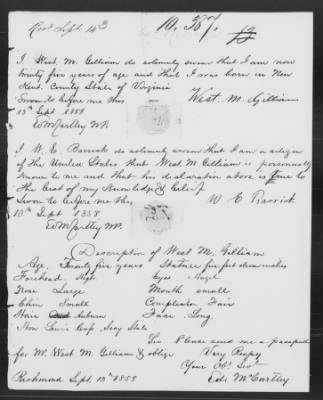 Recd Sept. 14th
No. 387.
I West. M. Gilliam do solemnly swear that I am now
twenty five years of age and that I was born in New
Kent. County State of Virginia
Sworn to before me this
13th Sept 1858
West. M. Gilliam
Ed McCartley NP.
I W. C. Barrick do solemnly swear that I am a citizen
of the United States that West M Gilliam is personally
known to me and that his declaration above is true to
the best of my knowledge & belief
Sworn to before me this
13th Sept 1858
W C Barrick
Ed McCartley NP.
Description of West M. Gilliam
Age. Twenty five years
Stature five feet eleven inches
Forehead High
Eyes Hazel
Nose Large
Mouth small
Chin Small
Complexion Fair
Hair Auburn
Face Long
Hon Lewis Cass Secy State
Sir Please send me a passport
for Mr. West M. Gilliam & oblige
Very Respy
Your Obt Svt
Richmond Sept. 13th 1858
Ed. McCartley